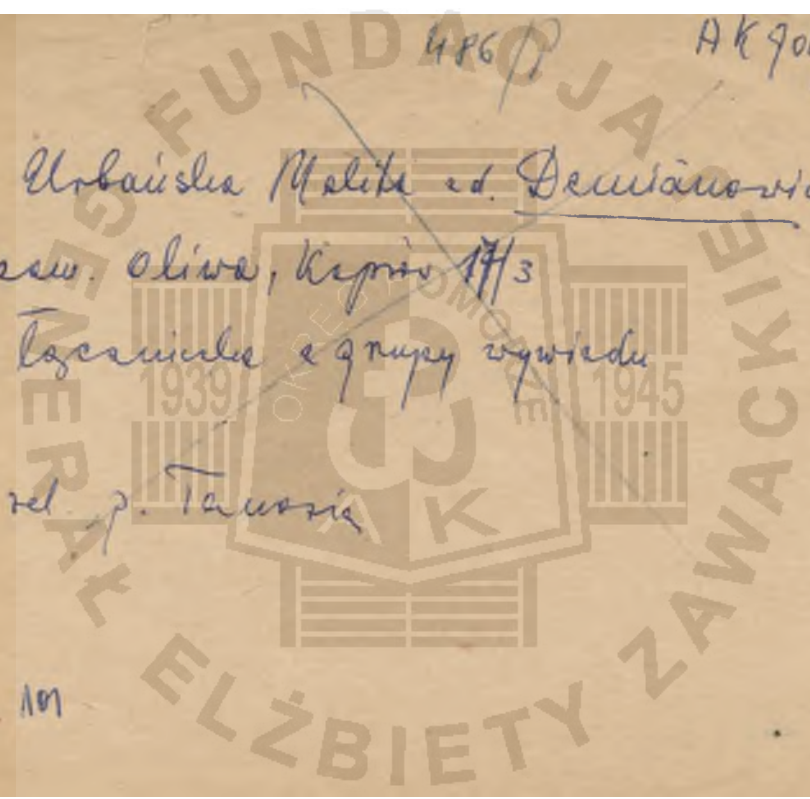 486/P AK Pom
Urbańska Malita zd. Demianowic
zaw. Oliwa, Kaprów 17/3
łączniczka z grupy wywiadu
rel. p.
101
FUNDACJA GENERAŁ ELŻBIETY ZAWACKIEJ
OKRĘG POMORZE
1939 1945
AK